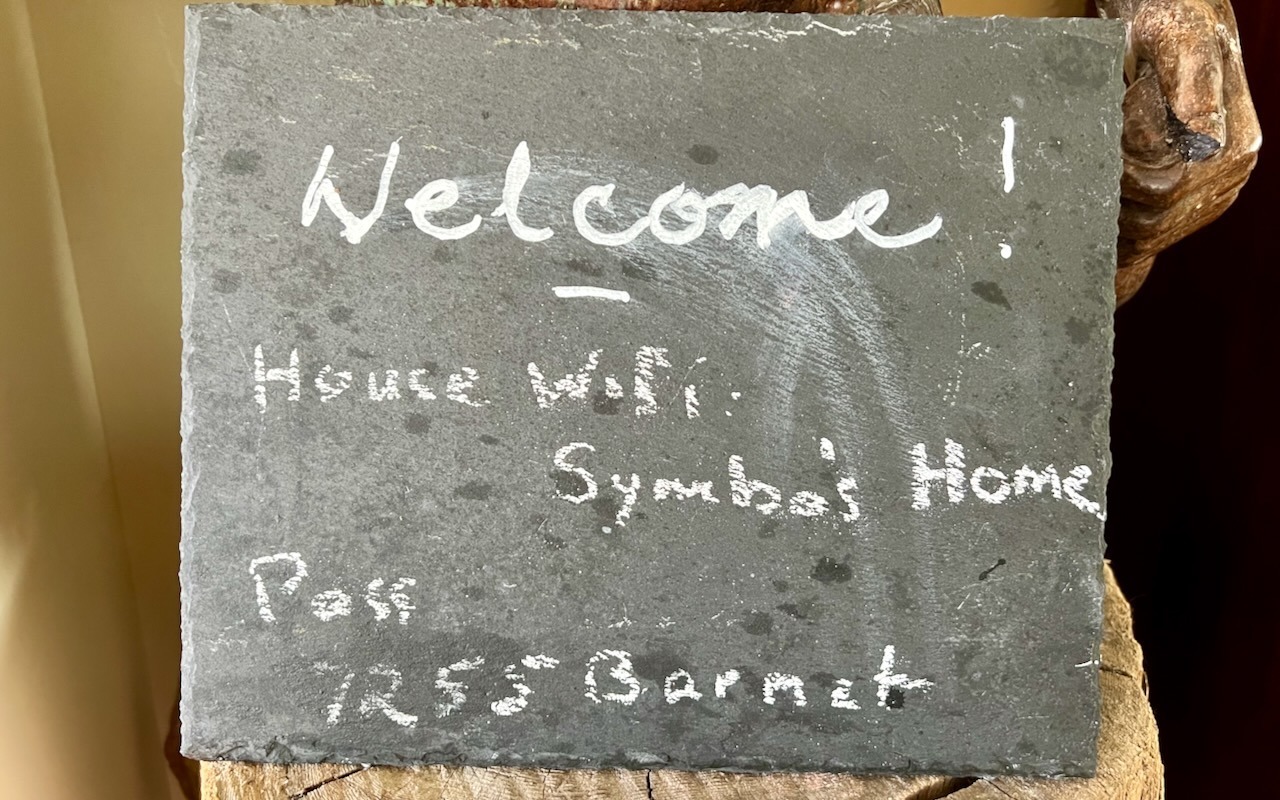 Welcome!
House Wifi:
Symba's Home
Pass
1255 Barnet